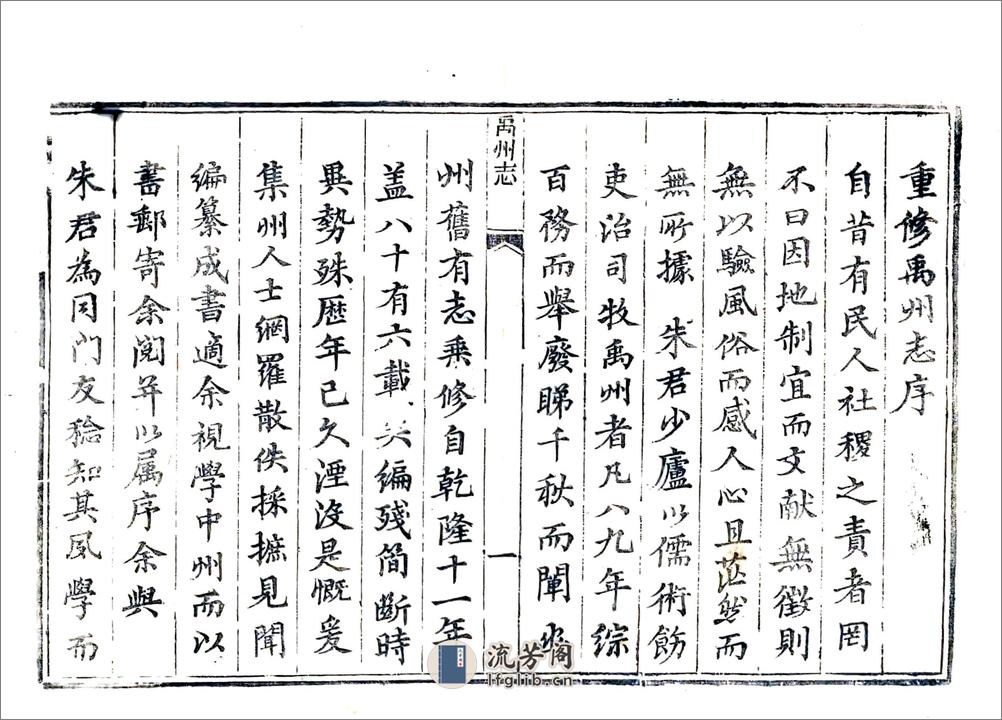 重修禹州志序
自昔有民人社稷之責者罔
不曰因地制宜而文献無徵則
無以驗風俗而感人心且茫然而
無所據 朱君少廬以儒術飭
吏治司牧禹州者凡八九年綜
百務而舉廢睇千秋而闡幽
禹州志
一
州舊有志乘修自乾隆十一年
盖八十有六載矣編殘簡斷時
異勢殊歷年已久湮没是慨爰
集州人士網羅散佚採摭見聞
編纂成書適余視學中州而以
書郵寄余閱并以属序余與
朱君為同門友稔知其夙學而
流芳阁
lfglib.cn